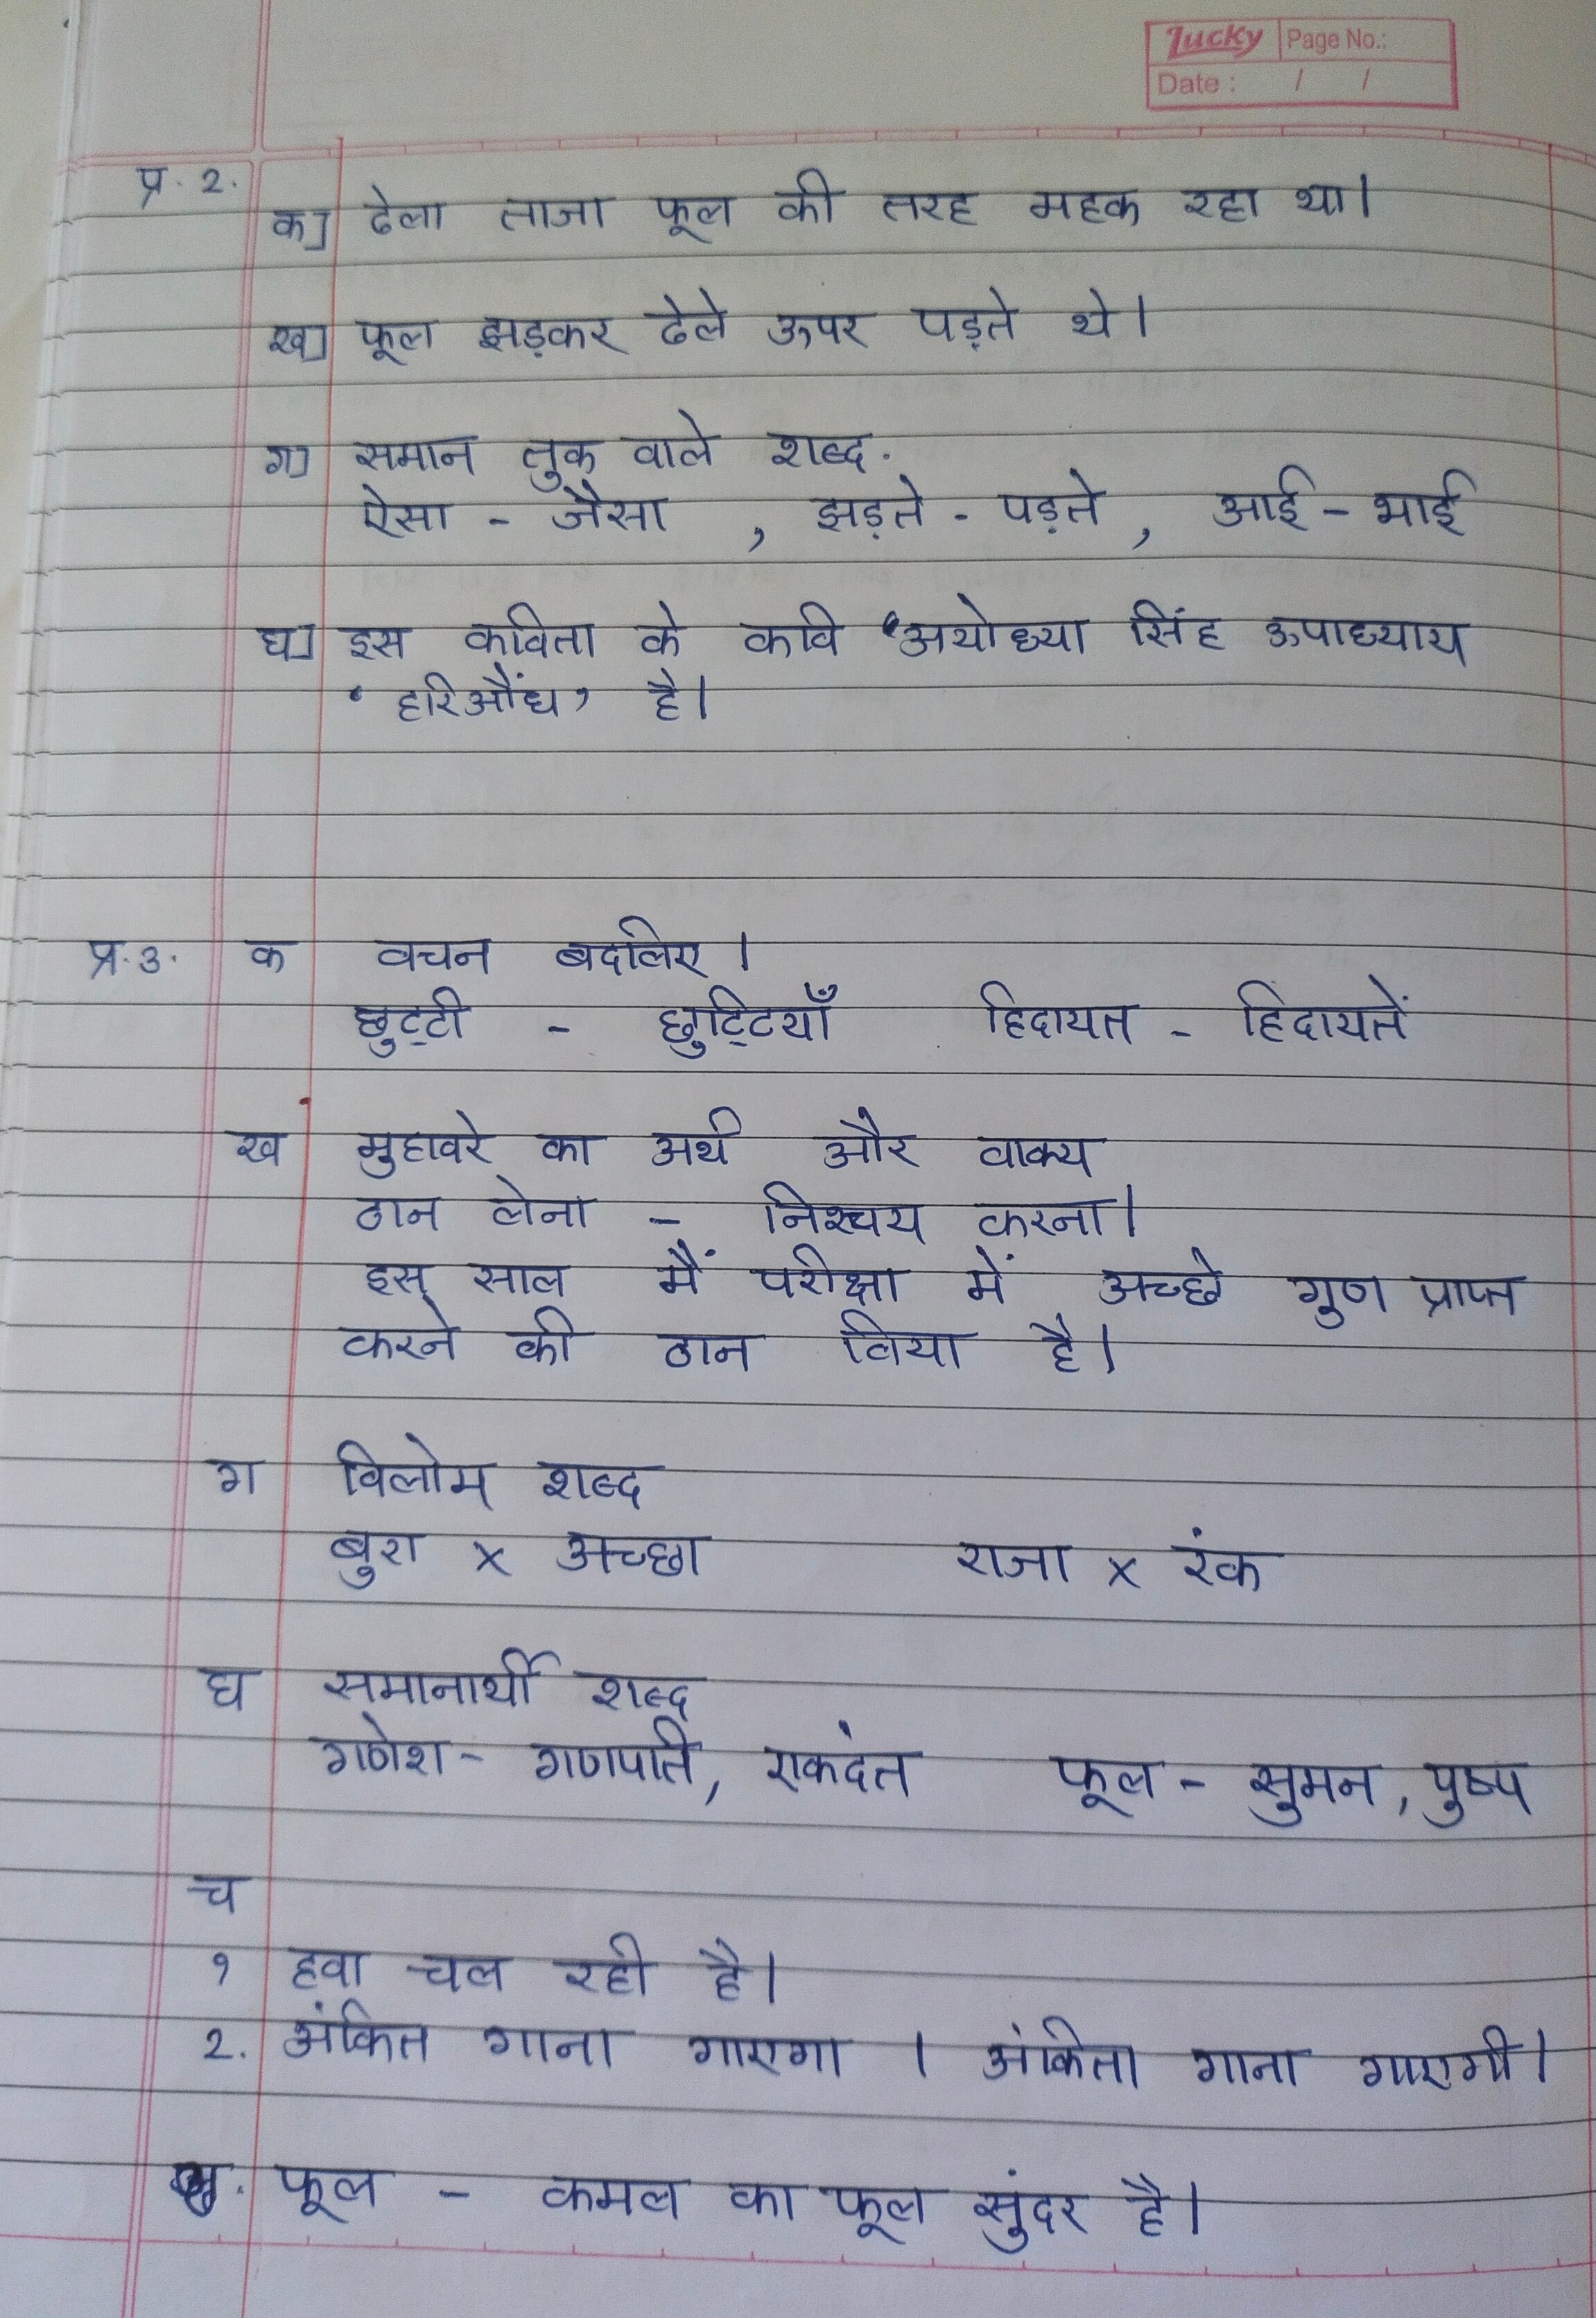 Lucky Page No.:
Date : / /
प्र. 2.
क] ढेला ताजा फूल की तरह महक रहा था।
ख] फूल झड़कर ढेले ऊपर पड़ते थे।
ग] समान तुक वाले शब्द.
ऐसा - जैसा , झड़ते - पड़ते , आई - भाई
घ] इस कविता के कवि ‘अयोध्या सिंह ऊपाध्याय
‘हरिऔंध’ है।
प्र.3. क वचन बदलिए।
छुट्टी - छुट्टियाँ हिदायत - हिदायतें
ख मुहावरे का अर्थ और वाक्य
ठान लेना - निश्चय करना।
इस साल मैं परीक्षा में अच्छे गुण प्राप्त
करने की ठान लिया है।
ग विलोम शब्द
बुरा x अच्छा राजा x रंक
घ समानार्थी शब्द
गणेश - गणपति, एकदंत फूल - सुमन, पुष्प
च
१ हवा चल रही है।
2. अंकित गाना गाएगा । अंकिता गाना गाएगी।
फूल - कमल का फूल सुंदर है।